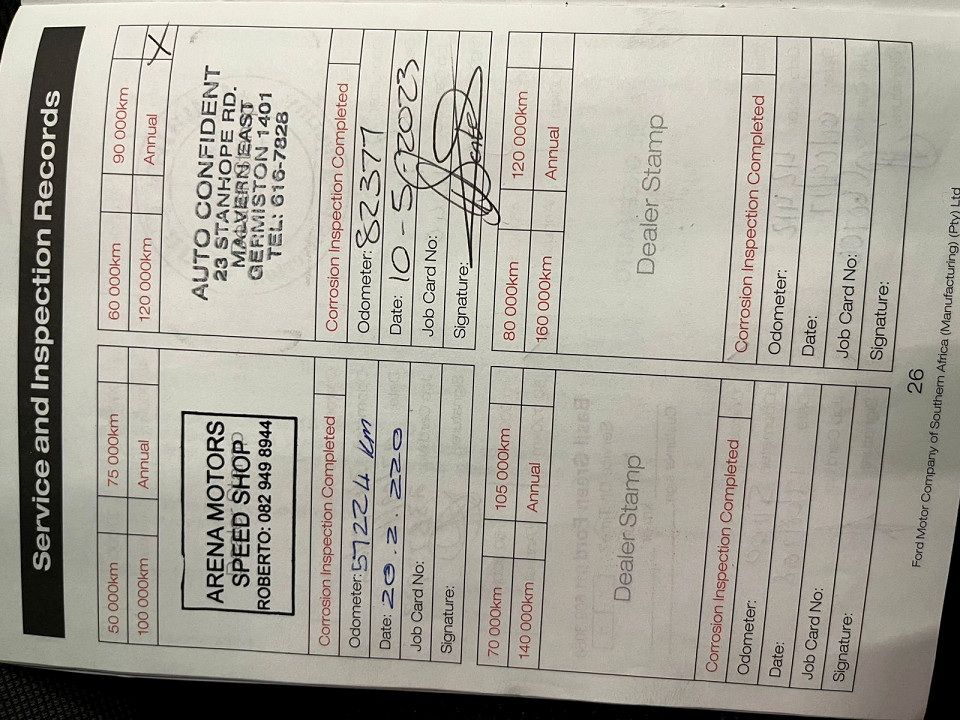 Service and Inspection Records
50 000km 75 000km
100 000km Annual
ARENA MOTORS
SPEED SHOP
ROBERTO: 082 949 8944
Corrosion Inspection Completed
Odometer: 57224 km
Date: 20.2.2220
Job Card No:
Signature:
60 000km 90 000km
120 000km Annual X
AUTO CONFIDENT
23 STANHOPE RD.
MALVERN EAST
GERMISTON 1401
TEL: 616-7828
Corrosion Inspection Completed
Odometer: 82377
Date: 10-5-2023
Job Card No:
Signature:
70 000km 105 000km
140 000km Annual
Dealer Stamp
Corrosion Inspection Completed
Odometer:
Date:
Job Card No:
Signature:
80 000km 120 000km
160 000km Annual
Dealer Stamp
Corrosion Inspection Completed
Odometer:
Date:
Job Card No:
Signature:
26
Ford Motor Company of Southern Africa (Manufacturing) (Pty) Ltd